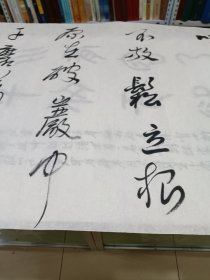 不放鬆立根
原在破巖中
千磨